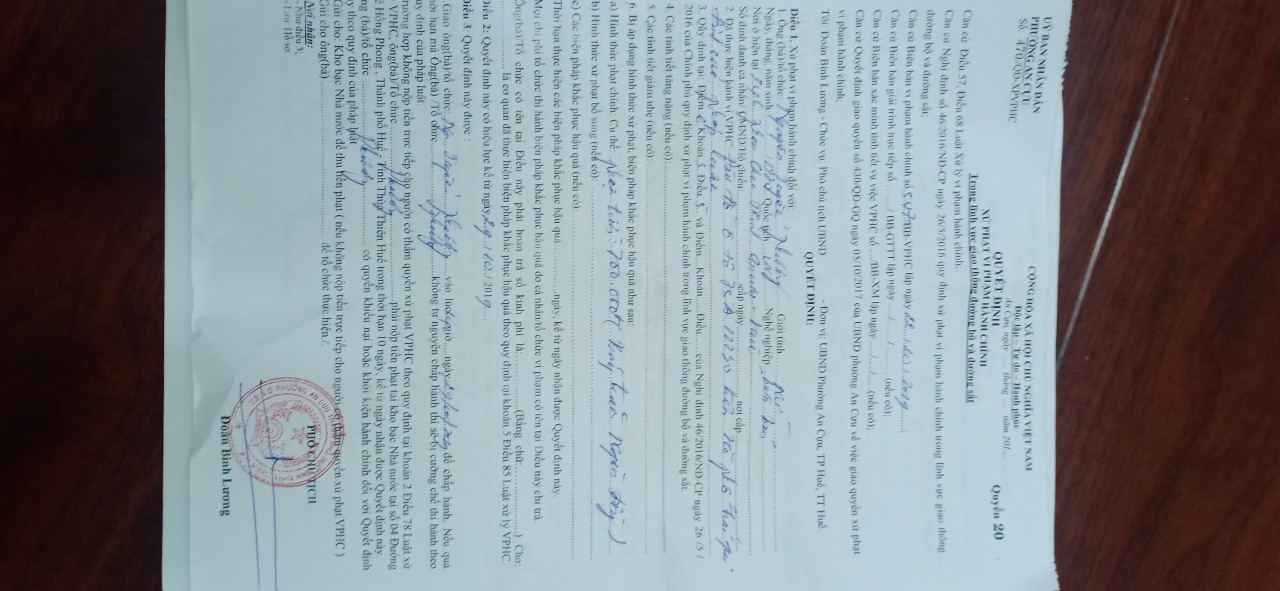 ỦY BAN NHÂN DÂN
PHƯỜNG AN CỰU
Số: 470/QĐ-XPVPHC
CỘNG HÒA XÃ HỘI CHỦ NGHĨA VIỆT NAM
Độc lập – Tự do – Hạnh phúc
Quyển 20
An Cựu, ngày ... tháng ... năm 201...
QUYẾT ĐỊNH
XỬ PHẠT VI PHẠM HÀNH CHÍNH
Trong lĩnh vực giao thông đường bộ và đường sắt
Căn cứ Điều 57, Điều 68 Luật Xử lý vi phạm hành chính;
Căn cứ Nghị định số 46/2016/NĐ-CP ngày 26/5/2016 quy định xử phạt vi phạm hành chính trong lĩnh vực giao thông
đường bộ và đường sắt;
Căn cứ Biên bản vi phạm hành chính số 547/BB-VPHC lập ngày 22/10/2019;
Căn cứ Biên bản giải trình trực tiếp số ....../BB-GTTT lập ngày ..../..../...... (nếu có);
Căn cứ Biên bản xác minh tình tiết vụ việc VPHC số ..../BB-XM lập ngày ..../..../.... (nếu có);
Căn cứ Quyết định giao quyền số 431/QĐ-GQ ngày 05/10/2017 của UBND phường An Cựu về việc giao quyền xử phạt
vi phạm hành chính;
Tôi: Đoàn Bình Lương - Chức vụ: Phó chủ tịch UBND - Đơn vị: UBND Phường An Cựu, TP Huế, TT Huế
QUYẾT ĐỊNH:
Điều 1. Xử phạt vi phạm hành chính đối với:
1. Ông (bà)/tổ chức: Nguyễn Giới tính
Ngày, tháng, năm sinh Quốc tịch VN Nghề nghiệp
Nơi ở hiện tại
Số định danh cá nhân/ CMND/Hộ chiếu cấp ngày nơi cấp
2. Đã thực hiện hành vi VPHC: ô tô 75A
3. Quy định tại: Điểm Khoản Điều 5 và Điểm....Khoản.....Điều..... của Nghị định 46/2016/NĐ-CP ngày 26 /5 /
2016 của Chính phủ quy định xử phạt vi phạm hành chính trong lĩnh vực giao thông đường bộ và đường sắt.
4. Các tình tiết tăng nặng (nếu có):
5. Các tình tiết giảm nhẹ (nếu có):
6. Bị áp dụng hình thức xử phạt, biện pháp khắc phục hậu quả như sau:
a) Hình thức phạt chính. Cụ thể: phạt tiền: 750.000đ (Bảy trăm năm mươi ngàn đồng)
b) Hình thức xử phạt bổ sung (nếu có):
c) Các biện pháp khắc phục hậu quả (nếu có):
Thời hạn thực hiện các biện pháp khắc phục hậu quả ...... ngày, kể từ ngày nhận được Quyết định này.
Mọi chi phí tổ chức thi hành biện pháp khắc phục hậu quả do cá nhân/tổ chức vi phạm có tên tại Điều này chi trả.
Ông(bà)/Tổ chức có tên tại Điều này phải hoàn trả số kinh phí là: ........(Bằng chữ: ........) Cho:
........ là cơ quan đã thực hiện biện pháp khắc phục hậu quả theo quy định tại khoản 5 Điều 85 Luật xử lý VPHC
Điều 2: Quyết định này có hiệu lực kể từ ngày 29/10/2019
Điều 3: Quyết định này được :
Giao ông(bà)/tổ chức: vào lúc giờ ngày để chấp hành. Nếu quá
thời hạn mà Ông(bà)/Tổ chức không tự nguyện chấp hành thì sẽ bị cưỡng chế thi hành theo
quy định của pháp luật.
trường hợp không nộp tiền trực tiếp cho người có thẩm quyền xử phạt VPHC theo quy định tại khoản 2 Điều 78 Luật xử
VPHC, ông(bà)/Tổ chức phải nộp tiền phạt tại kho bạc Nhà nước tại số 04 Đường
Lê Hồng Phong - Thành phố Huế - Tỉnh Thừa Thiên Huế trong thời hạn 10 ngày, kể từ ngày nhận được Quyết định này.
ông (bà)/tổ chức có quyền khiếu nại hoặc khởi kiện hành chính đối với Quyết định
này theo quy định của pháp luật
Gửi cho: Kho bạc Nhà nước để thu tiền phạt ( nếu không nộp tiền trực tiếp cho người có thẩm quyền xử phạt VPHC )
Gửi cho ông(bà) để tổ chức thực hiện./.
Nơi nhận:
- Như điều 3;
- Lưu Hồ sơ
PHÓ CHỦ TỊCH
Đoàn Bình Lương